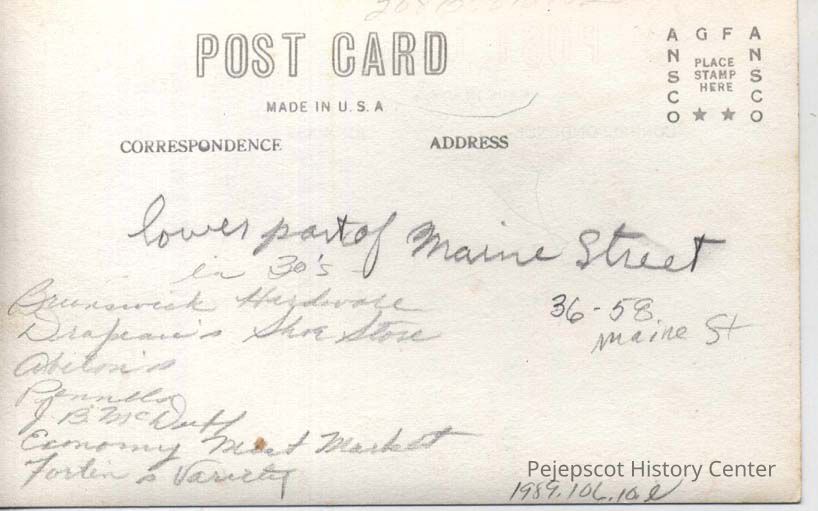 POST CARD
MADE IN U.S.A
CORRESPONDENCE
ADDRESS
A G F A
ANSCO
PLACE
STAMP
HERE
ANSCO
lower part of Maine Street
in 30's
Brunswick Hardware
Drapeau's Shoe Store
36-58
Maine St
Pennells
J. B.
Economy Meat Market
Fortin's Variety
Pejepscot History Center